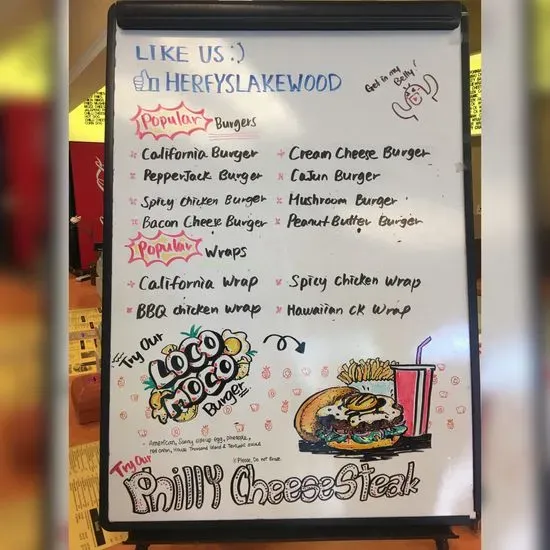 LIKE US :)
HERFYSLAKEWOOD
Get in my Belly!
Popular Burgers
California Burger
Cream Cheese Burger
PepperJack Burger
Cajun Burger
Spicy Chicken Burger
Mushroom Burger
Bacon Cheese Burger
Peanut Butter Burger
Popular Wraps
California Wrap
Spicy Chicken Wrap
BBQ Chicken Wrap
Hawaiian CK Wrap
Try Our
LOCO
MOCO
Burger
- American, Sunny side up egg, pineapple,
red onion, House Thousand Island & Teriyaki sauce
Please, Do not Erase.
Try Our
Philly CheeseSteak